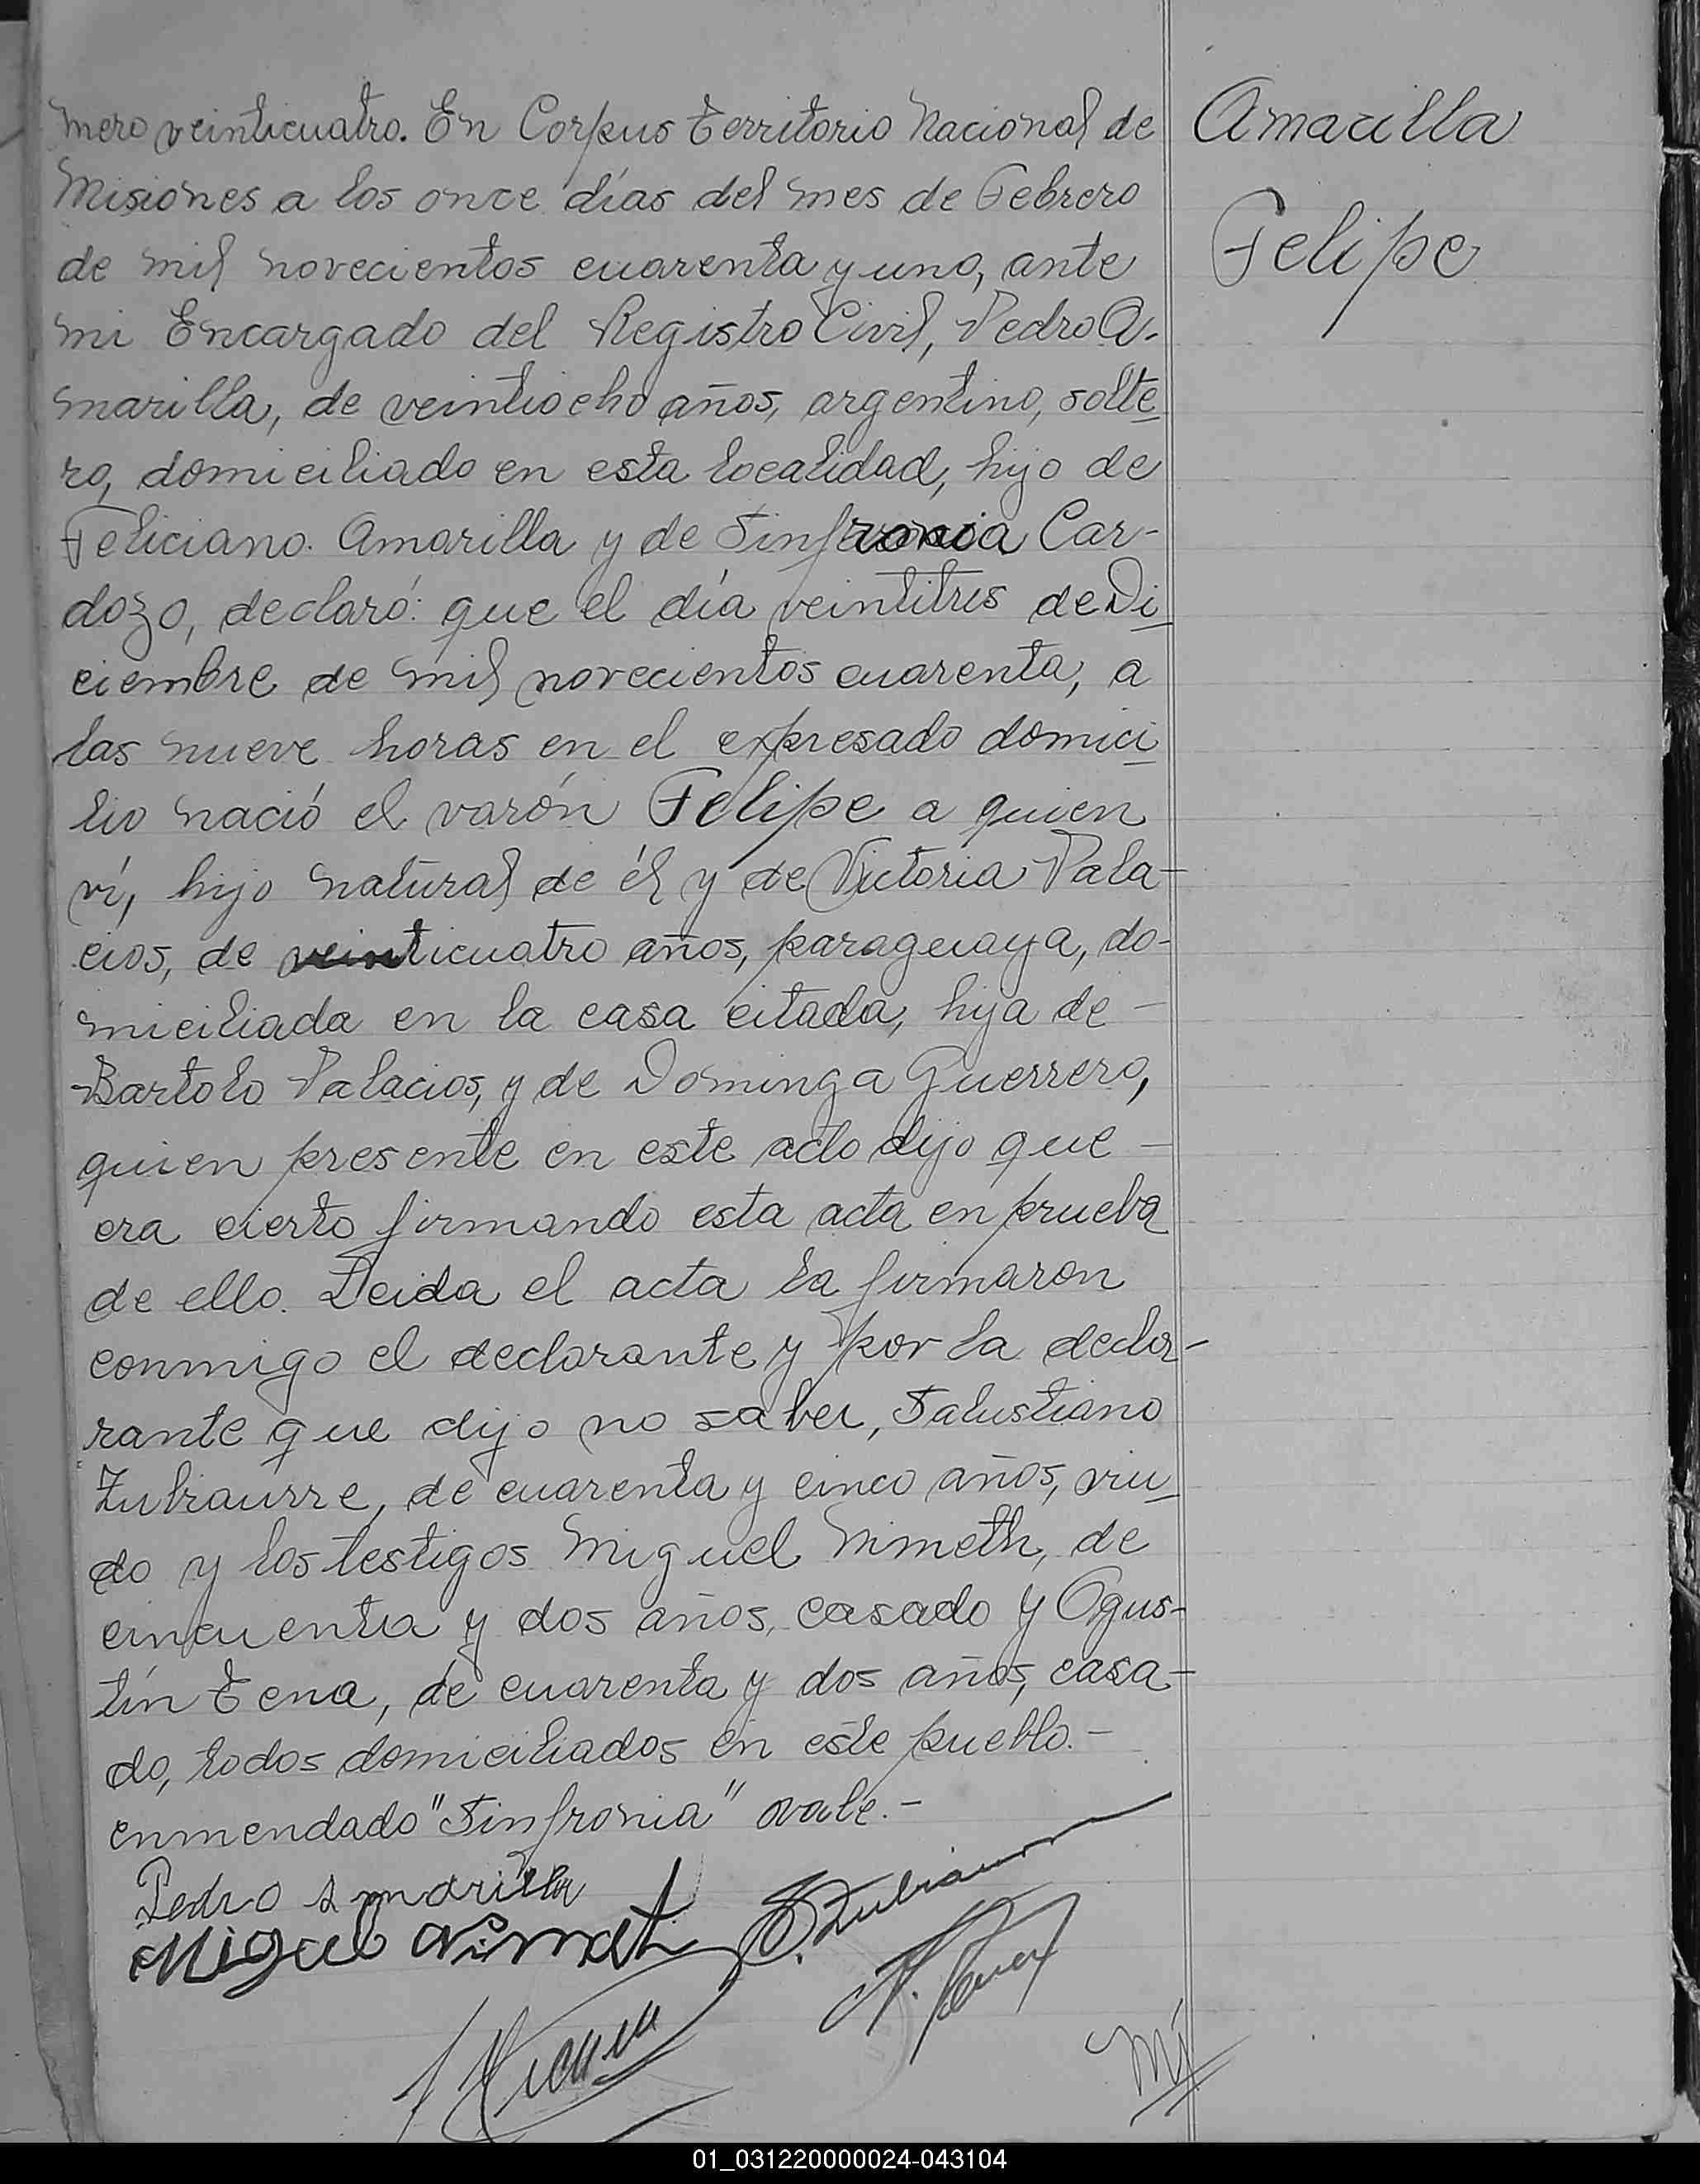 mero veinticuatro. En Corpus Territorio Nacional de
Misiones a los once días del mes de Febrero
de mil novecientos cuarenta y uno, ante
mi Encargado del Registro Civil, Pedro A-
marilla, de veintiocho años, argentino, solte
ro, domiciliado en esta localidad, hijo de
Feliciano Amarilla y de Sinfronia Car-
dozo, declaró: que el día veintitres de Di
ciembre de mil novecientos cuarenta, a
las nueve horas en el expresado domici
lio nació el varón Felipe a quien
ví, hijo natural de él y de Victoria Pala-
cios, de veinticuatro años, paraguaya, do-
miciliada en la casa citada, hija de -
Bartolo Palacios, y de Dominga Guerrero,
quien presente en este acto dijo que -
era cierto firmando esta acta en prueba
de ello. Leida el acta la firmaron
conmigo el declarante y por la decla-
rante que dijo no saber, Salustiano
Zubiaurre, de cuarenta y cinco años, viu
do y los testigos Miguel Nimeth, de
cincuenta y dos años, casado y Agus-
tín Tena, de cuarenta y dos años, casa-
do, todos domiciliados en este pueblo.-
enmendado "Sinfronia" vale.-
Pedro Amarilla
Miguel Nimet
S. Zubiaurre
A. Tena
Amarilla
Felipe
01_031220000024-043104